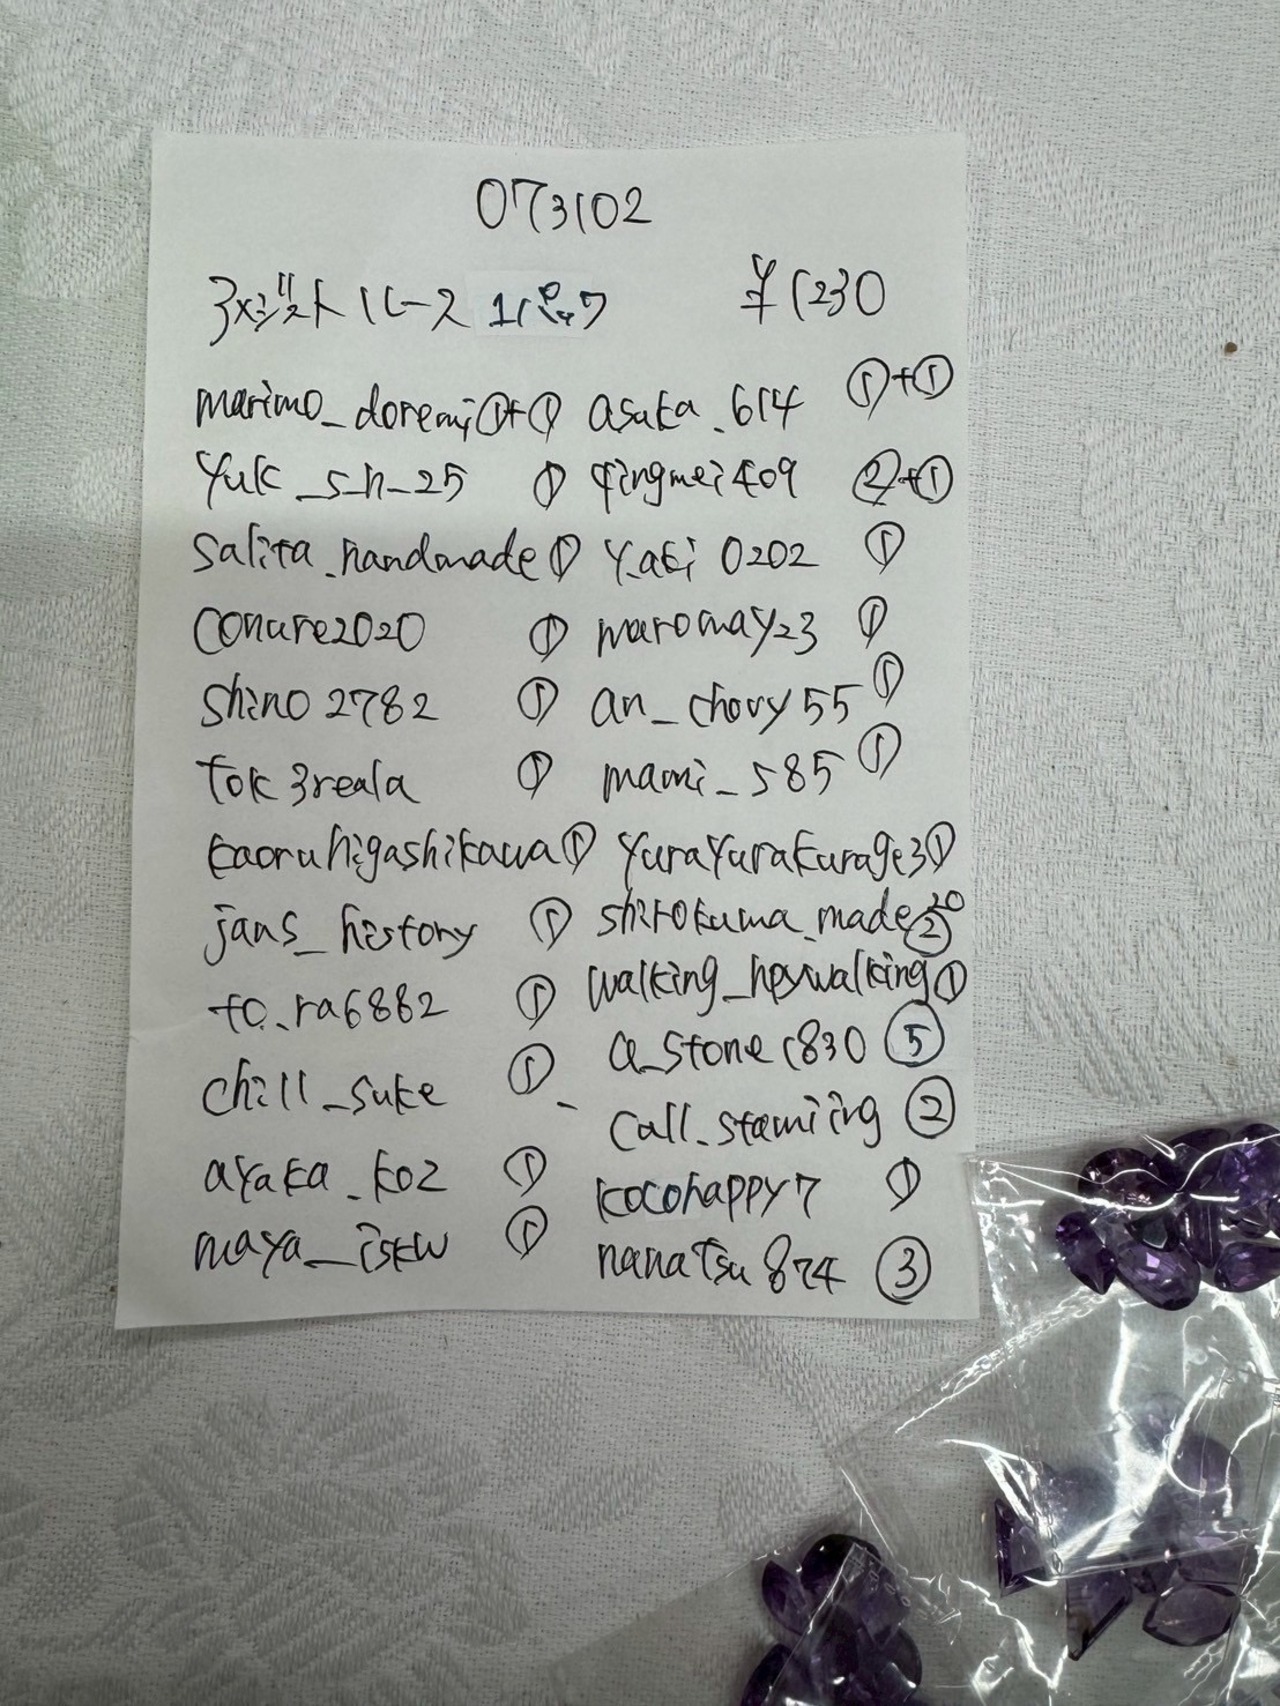 073102
アメジストルース 1パック ¥1230
marimo_doremi ①+① asuka_614 ①+①
yuk_s_h_25 ① qingmei409 ②+①
salita_handmade ① y.aki0202 ①
conure2020 ① maromay23 ①
shino2782 ① an_chovy55 ①
tok3reala ① mami_s85 ①
kaoruhigashikawa ① yurayurakurage3 ①
jans_history ① shirokuma_made20 ②
to.ra6882 ① walking_heywalking ①
chill_suke ① a_stone1830 ⑤
call_stamiing ②
ayaka_k02 ① kocohappy7 ①
maya_iskw ① nanatsu874 ③